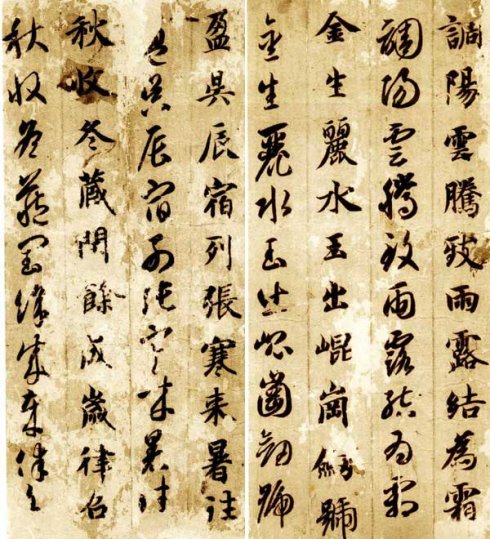 盈昃辰宿列張寒来暑往
盈昃辰宿列張寒来暑往
秋收冬藏閏餘成歲律召
秋收冬藏閏餘成歲律召
調陽雲騰致雨露結為霜
調陽雲騰致雨露結為霜
金生麗水玉出崐崗劒號
金生麗水玉出崐崗劒號